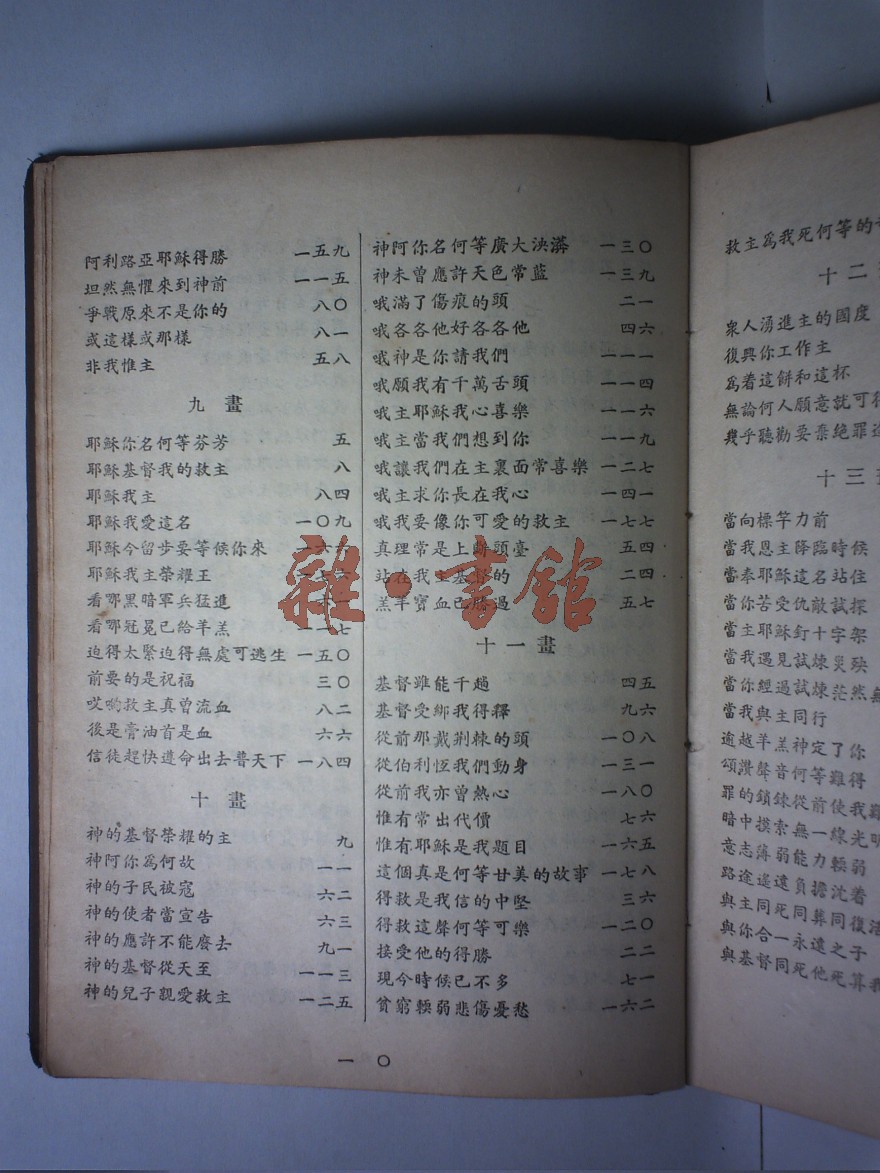 阿利路亞耶穌得勝 一五九
坦然無懼來到神前 一一五
爭戰原來不是你的 八〇
或這樣或那樣 八一
非我惟主 五八
九畫
耶穌你名何等芬芳 五
耶穌基督我的救主 八
耶穌我主 八四
耶穌我愛這名 一〇九
耶穌今留步要等候你來
耶穌我主榮耀王
看哪黑暗軍兵猛進
看哪冠冕已給羊羔 一一七
迫得太緊迫得無處可逃生 一五〇
前要的是祝福 三〇
哎喲救主真曾流血 八二
後是膏油首是血 六六
信徒趕快遵命出去普天下 一八四
十畫
神的基督榮耀的主 九
神阿你為何故 一一
神的子民被寇 六二
神的使者當宣告 六三
神的應許不能廢去 九一
神的基督從天至 一一三
神的兒子親愛救主 一二五
神阿你名何等廣大泱漭 一三〇
神未曾應許天色常藍 一三九
哦滿了傷痕的頭 二一
哦各各他好各各他 四六
哦神是你請我們 一一一
哦願我有千萬舌頭 一一四
哦主耶穌我心喜樂 一一六
哦主當我們想到你 一一九
哦讓我們在主裏面常喜樂 一二七
哦主求你長在我心 一四一
哦我要像你可愛的救主 一七七
真理常是上斷頭臺 五四
站在我主基督的 二四
羔羊寶血已勝過 五七
十一畫
基督雖能千趟 四五
基督受綁我得釋 九六
從前那戴荆棘的頭 一〇八
從伯利恆我們動身 一三一
從前我亦曾熱心 一八〇
惟有常出代價 七六
惟有耶穌是我題目 一六五
這個真是何等甘美的故事 一七八
得救是我信的中堅 三六
得救這聲何等可樂 一二〇
接受他的得勝 二二
現今時候已不多 七一
貧窮輭弱悲傷憂愁 一六二
一〇
救主為我死何等的
十二
衆人湧進主的國度
復興你工作主
為着這餅和這杯
無論何人願意就可得
幾乎聽勸要棄絕罪
十三
當向標竿力前
當我恩主降臨時候
當奉耶穌這名站住
當你苦受仇敵試探
當主耶穌釘十字架
當我遇見試煉災殃
當你經過試煉茫然無
當我與主同行
逾越羊羔神定了你
頌讚聲音何等難得
罪的鎖鍊從前使我
暗中摸索無一線光明
意志薄弱能力輭弱
路途遙遠負擔沈着
與主同死同葬同復活
與你合一永遠之子
與基督同死他死算我
雜·書館